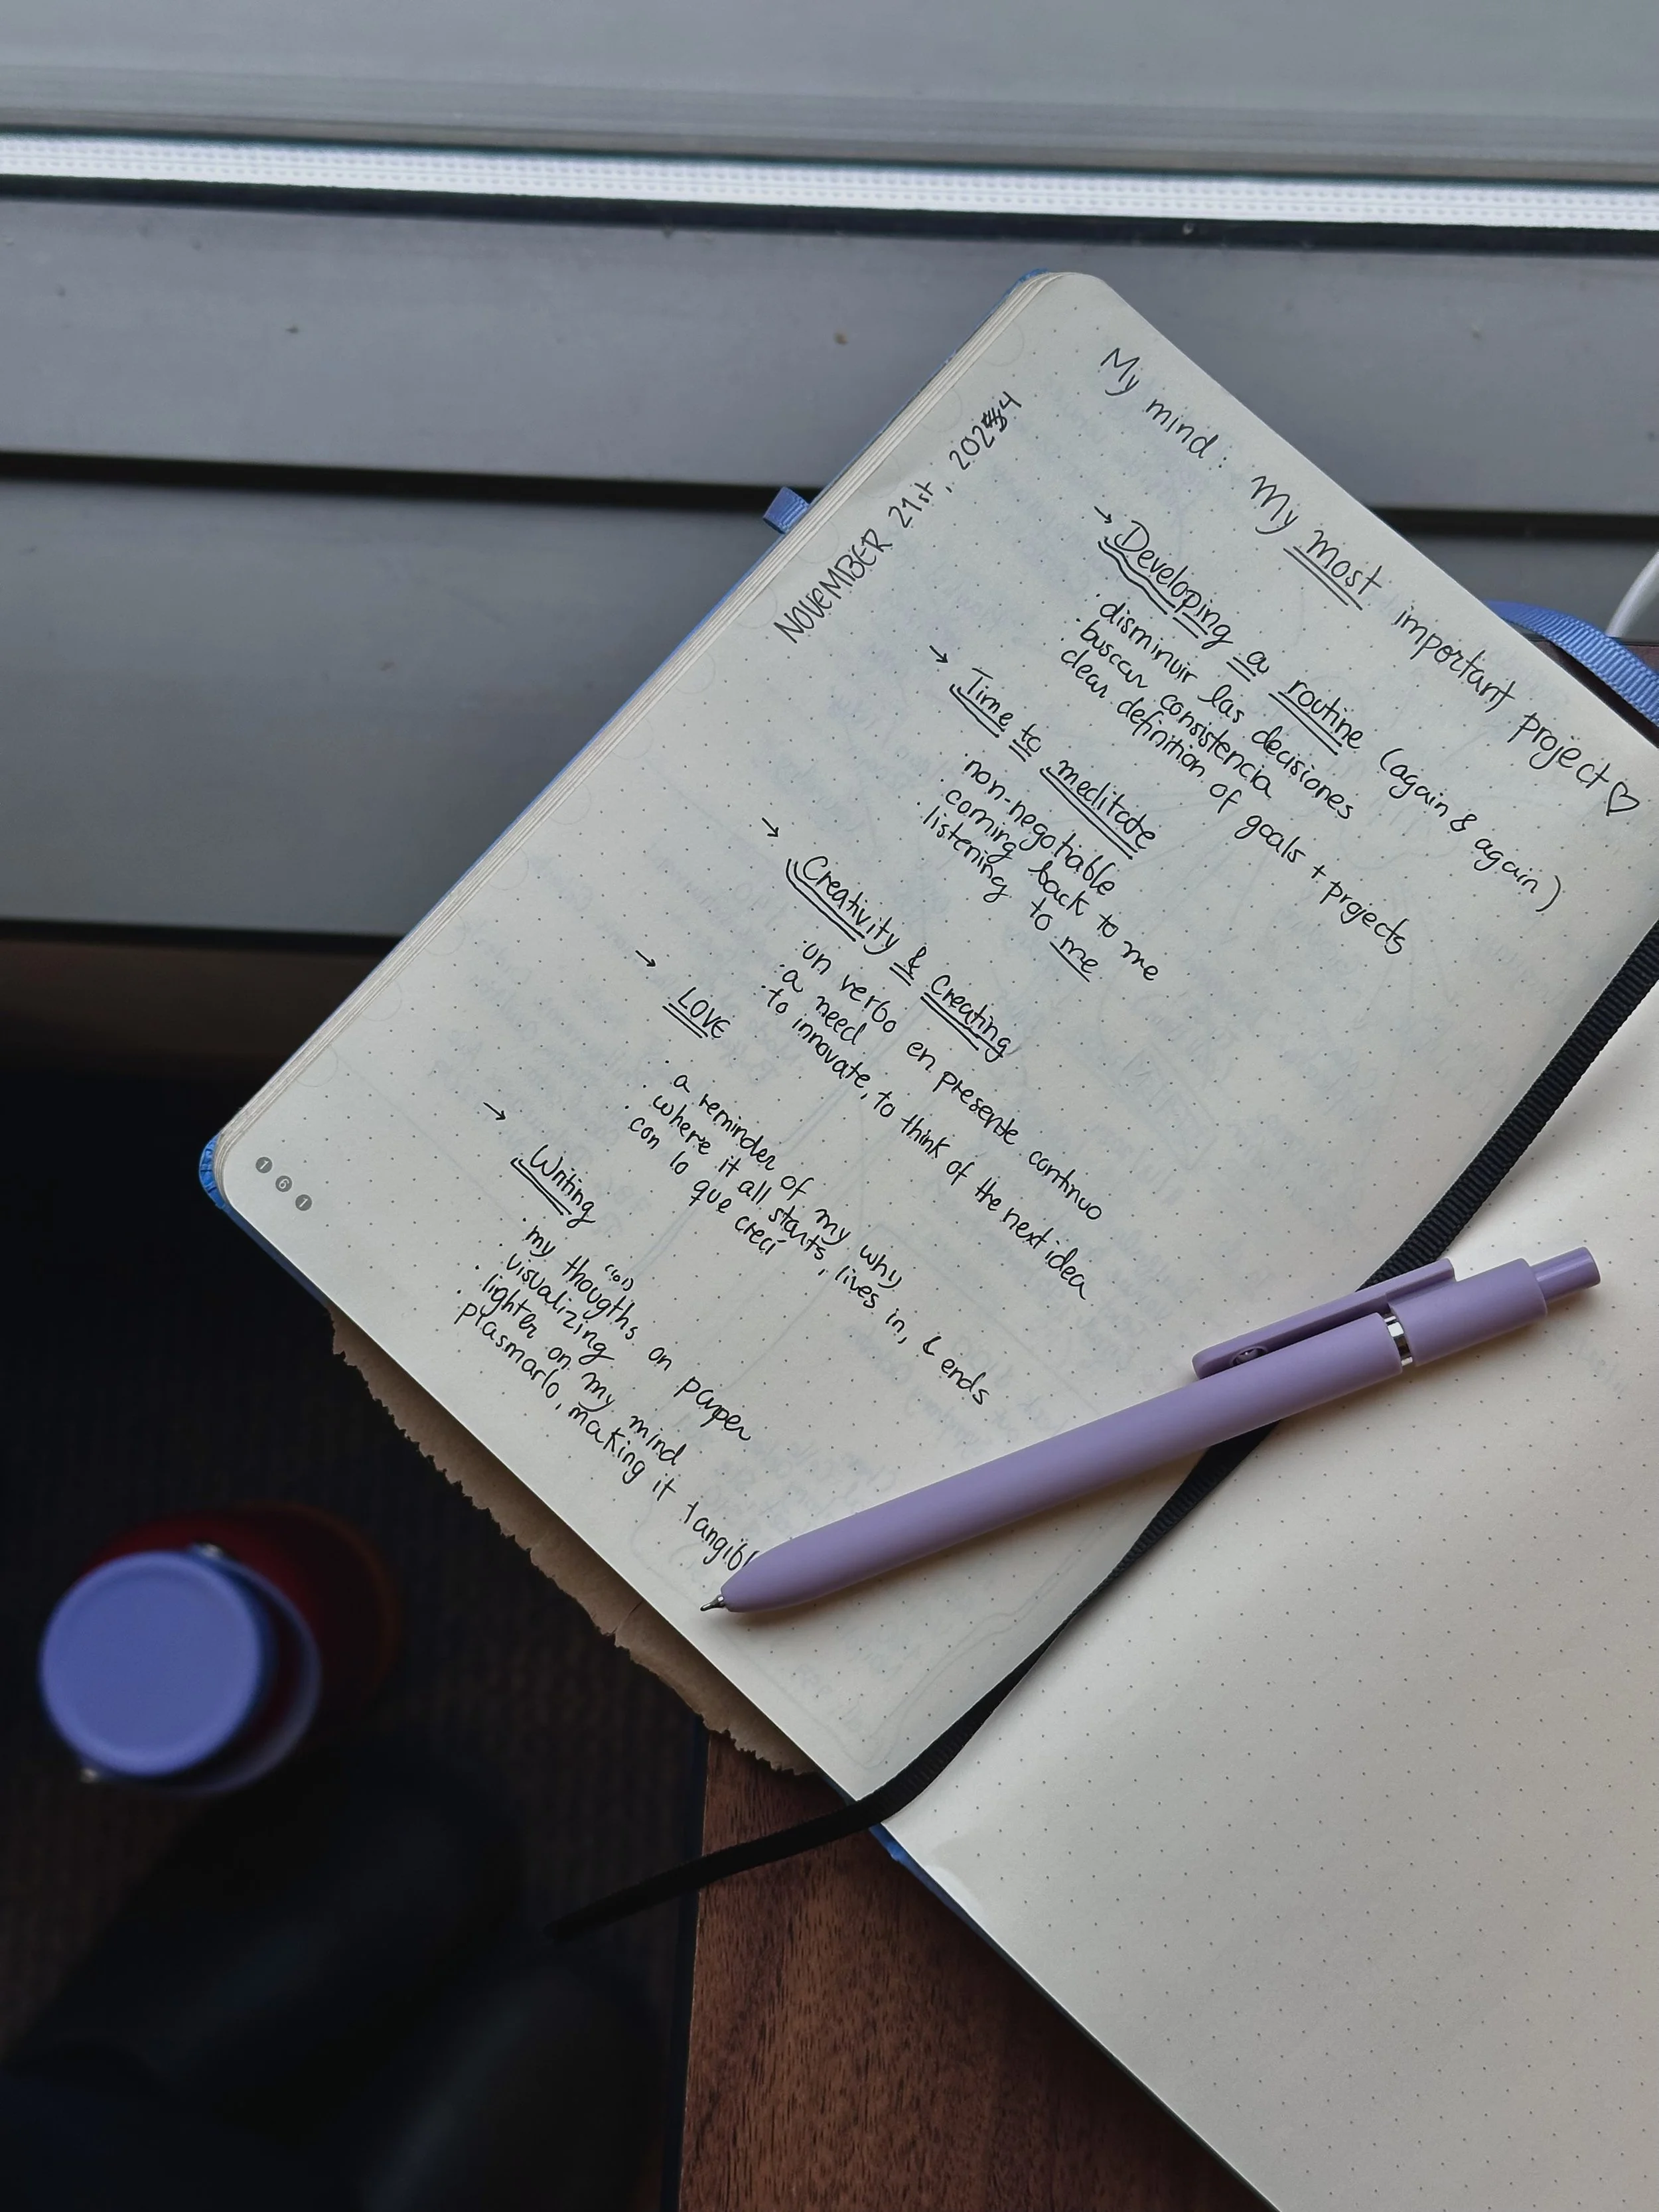 My mind: My most important project ♡
NOVEMBER 21st, 2024
→ Developing a routine (again & again)
· disminuir las decisiones
· buscar consistencia
· clear definition of goals + projects
→ Time to meditate
· non-negotiable
· coming back to me
· listening to me
→ Creativity & Creating
· un verbo en presente continuo
· a need
· to innovate, to think of the next idea
→ LOVE
· a reminder of my why
· where it all starts, lives in, & ends
· con lo que crecí
→ Writing
· my thougths (lol) on paper
· visualizing
· lighter on my mind
· plasmarlo, making it tangibl
161